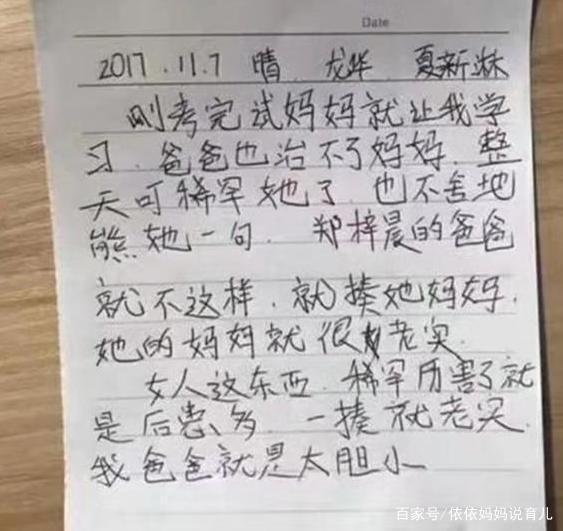 Date
2017.11.7 晴 龙华 夏新淋
刚考完试妈妈就让我学
习.爸爸也治不了妈妈.整
天可稀罕她了.也不舍地
熊她一句.郑梓晨的爸爸
就不这样.就揍她妈妈.
她的妈妈就很老实.
女人这东西.稀罕厉害了就
是后患多.一揍就老实.
我爸爸就是太胆小
百家号/依依妈妈说育儿